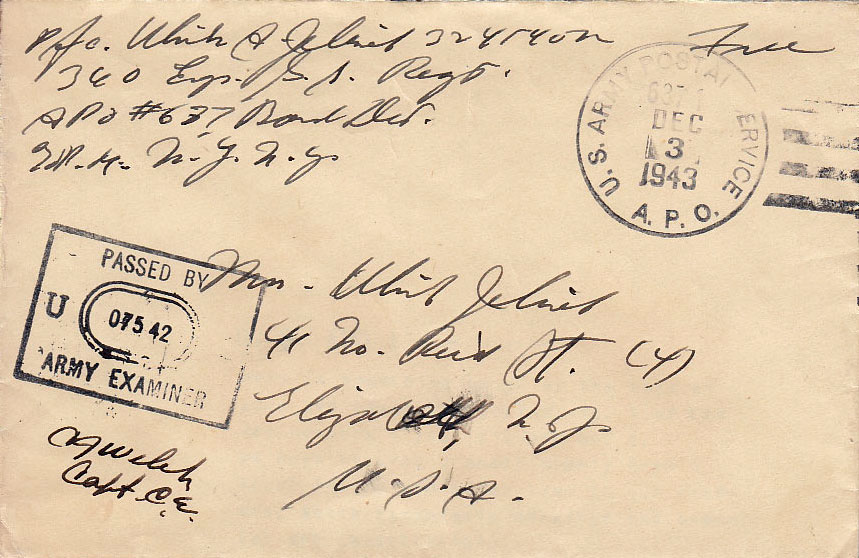 Pfc. A Jelinek 32454022 Free
340 Eng. G. S. Regt.
APO #637, Band Det.
℅ P.M. N.Y. N.Y.
U.S. ARMY POSTAL SERVICE
637
DEC
3
1943
A.P.O.
PASSED BY
U
07542
ARMY EXAMINER
Mrs.
41 No. Reid St. (4)
Elizabeth, N.J.
U.S.A.
Welch
Capt. C.E.